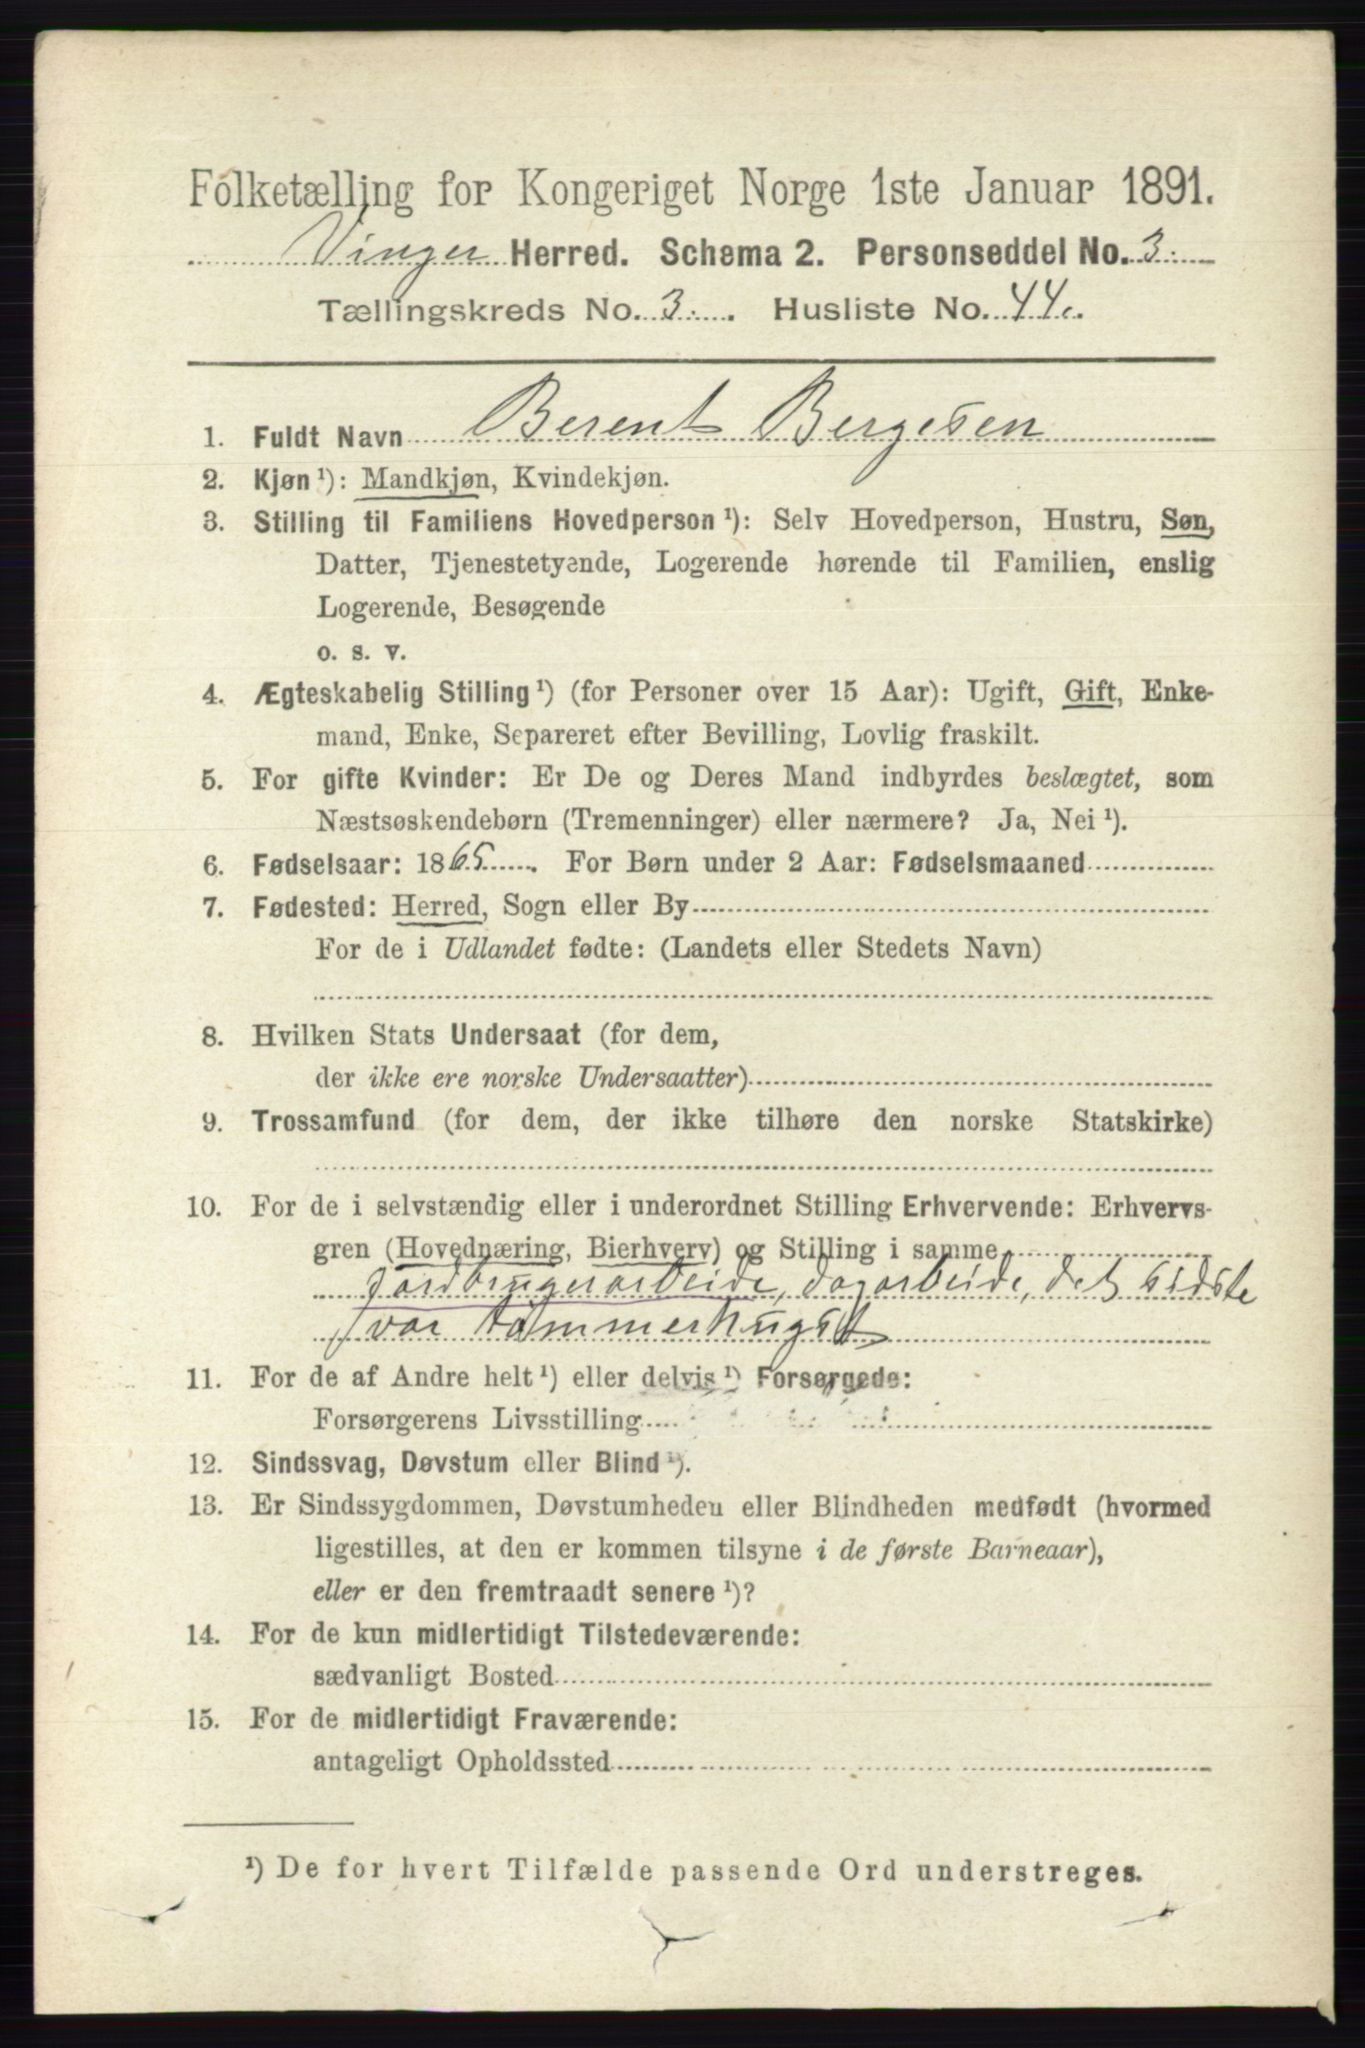 Folketælling for Kongeriget Norge 1ste Januar 1891.
Vinger Herred. Schema 2. Personseddel No. 3.
Tællingskreds No. 3. Husliste No. 44.
1. Fuldt Navn Berent Bergesen
2. Kjøn ¹): Mandkjøn, Kvindekjøn.
3. Stilling til Familiens Hovedperson ¹): Selv Hovedperson, Hustru, Søn,
Datter, Tjenestetyende, Logerende hørende til Familien, enslig
Logerende, Besøgende
o. s. v.
4. Ægteskabelig Stilling ¹) (for Personer over 15 Aar): Ugift, Gift, Enke-
mand, Enke, Separeret efter Bevilling, Lovlig fraskilt.
5. For gifte Kvinder: Er De og Deres Mand indbyrdes beslægtet, som
Næstsøskendebørn (Tremenninger) eller nærmere? Ja, Nei ¹).
6. Fødselsaar: 1865. For Børn under 2 Aar: Fødselsmaaned
7. Fødested: Herred, Sogn eller By
For de i Udlandet fødte: (Landets eller Stedets Navn)
8. Hvilken Stats Undersaat (for dem,
der ikke ere norske Undersaatter)
9. Trossamfund (for dem, der ikke tilhøre den norske Statskirke)
10. For de i selvstændig eller i underordnet Stilling Erhvervende: Erhvervs-
gren (Hovednæring, Bierhverv) og Stilling i samme
jordbrugerarbeide, dagarbeide, det sidste
var tømmerhugst
11. For de af Andre helt ¹) eller delvis ¹) Forsørgede:
Forsørgerens Livsstilling
12. Sindssvag, Døvstum eller Blind ¹).
13. Er Sindssygdommen, Døvstumheden eller Blindheden medfødt (hvormed
ligestilles, at den er kommen tilsyne i de første Barneaar),
eller er den fremtraadt senere ¹)?
14. For de kun midlertidigt Tilstedeværende:
sædvanligt Bosted
15. For de midlertidigt Fraværende:
antageligt Opholdssted
¹) De for hvert Tilfælde passende Ord understreges.